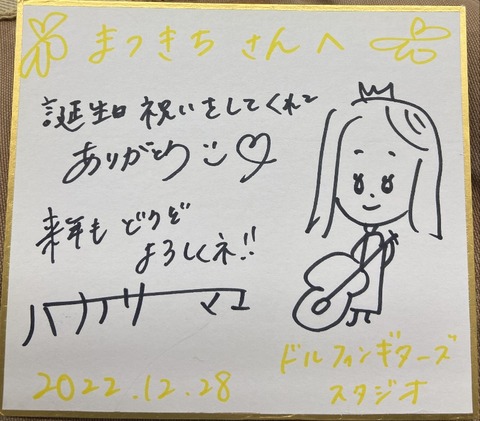 まつきちさんへ
誕生日祝いをしてくれて
ありがとう
来年もどうぞ
よろしくネ!!
2022.12.28
ドルフィンギターズ
スタジオ